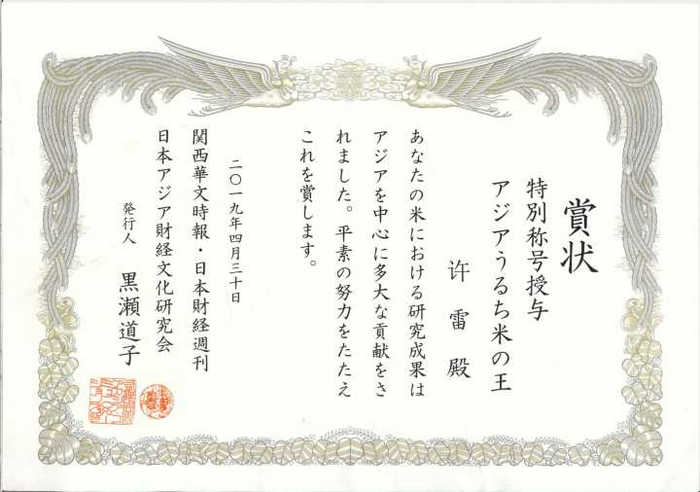 賞状
特別称号授与
アジアうるち米の王
许雷殿
あなたの米における研究成果は
アジアを中心に多大な貢献をさ
れました。平素の努力をたたえ
これを賞します。
二〇一九年四月三十日
関西華文時報・日本財経週刊
日本アジア財経文化研究会
発行人 黒瀬道子